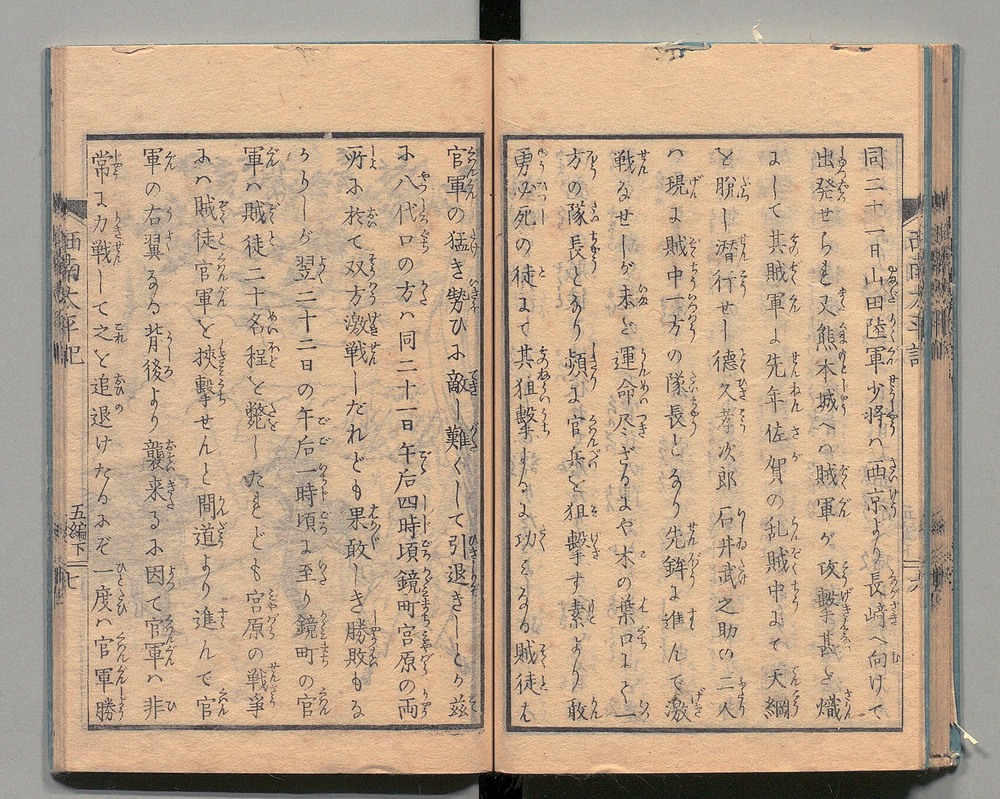 同二十一日山田陸軍少将ハ西京より長﨑へ向けて
出発せらる又熊本城への賊軍が攻撃甚だ熾
にして其賊軍に先年佐賀の乱賊中にて天網
を脱し潜行せし德久孝次郎石井武之助の二人
ハ現に賊中一方の隊長となり先鉾に進んで激
戦なせしが未だ運命尽ざるにや木の葉口にて一
方の隊長となり頻に官兵を狙撃す素より敢
勇必死の徒にて其狙撃しるに功をる賊徒も
官軍の猛き勢ひに敵し難くして引退きしとか茲
に八代口の方ハ同二十一日午后四時頃鏡町宮原の両
所に於て双方激戦したれども果敢しき勝敗もな
かりしが翌二十二日の午后一時頃に至り鏡町の官
軍ハ賊徒二十名程を斃したれども宮原の戦争
にハ賊徒官軍を挾擊せんと間道より進んで官
軍の右翼なる背後より襲来るに因て官軍ハ非
常に力戦して之を追退けたるにぞ一度ハ官軍勝
西南太平記
五編下
七